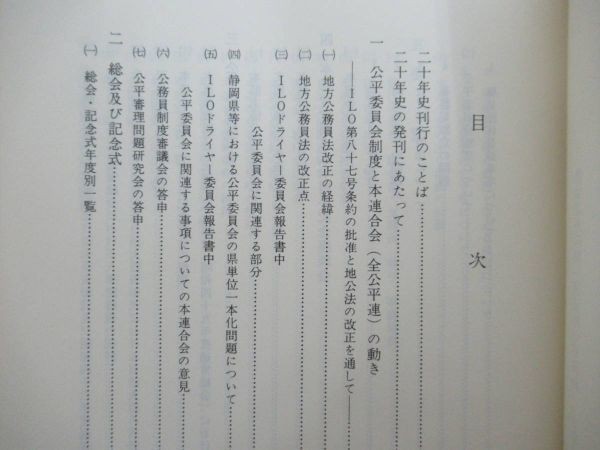 目次
二十年史刊行のことば
二十年史の発刊にあたって
一 公平委員会制度と本連合会（全公平連）の動き
――ILO第八十七号条約の批准と地公法の改正を通して――
㈠ 地方公務員法改正の経緯
㈡ 地方公務員法の改正点
㈢ ILOドライヤー委員会報告書中
公平委員会に関連する部分
㈣ 静岡県等における公平委員会の県単位一本化問題について
㈤ ILOドライヤー委員会報告書中
公平委員会に関連する事項についての本連合会の意見
㈥ 公務員制度審議会の答申
㈦ 公平審理問題研究会の答申
二 総会及び記念式
㈠ 総会・記念式年度別一覧